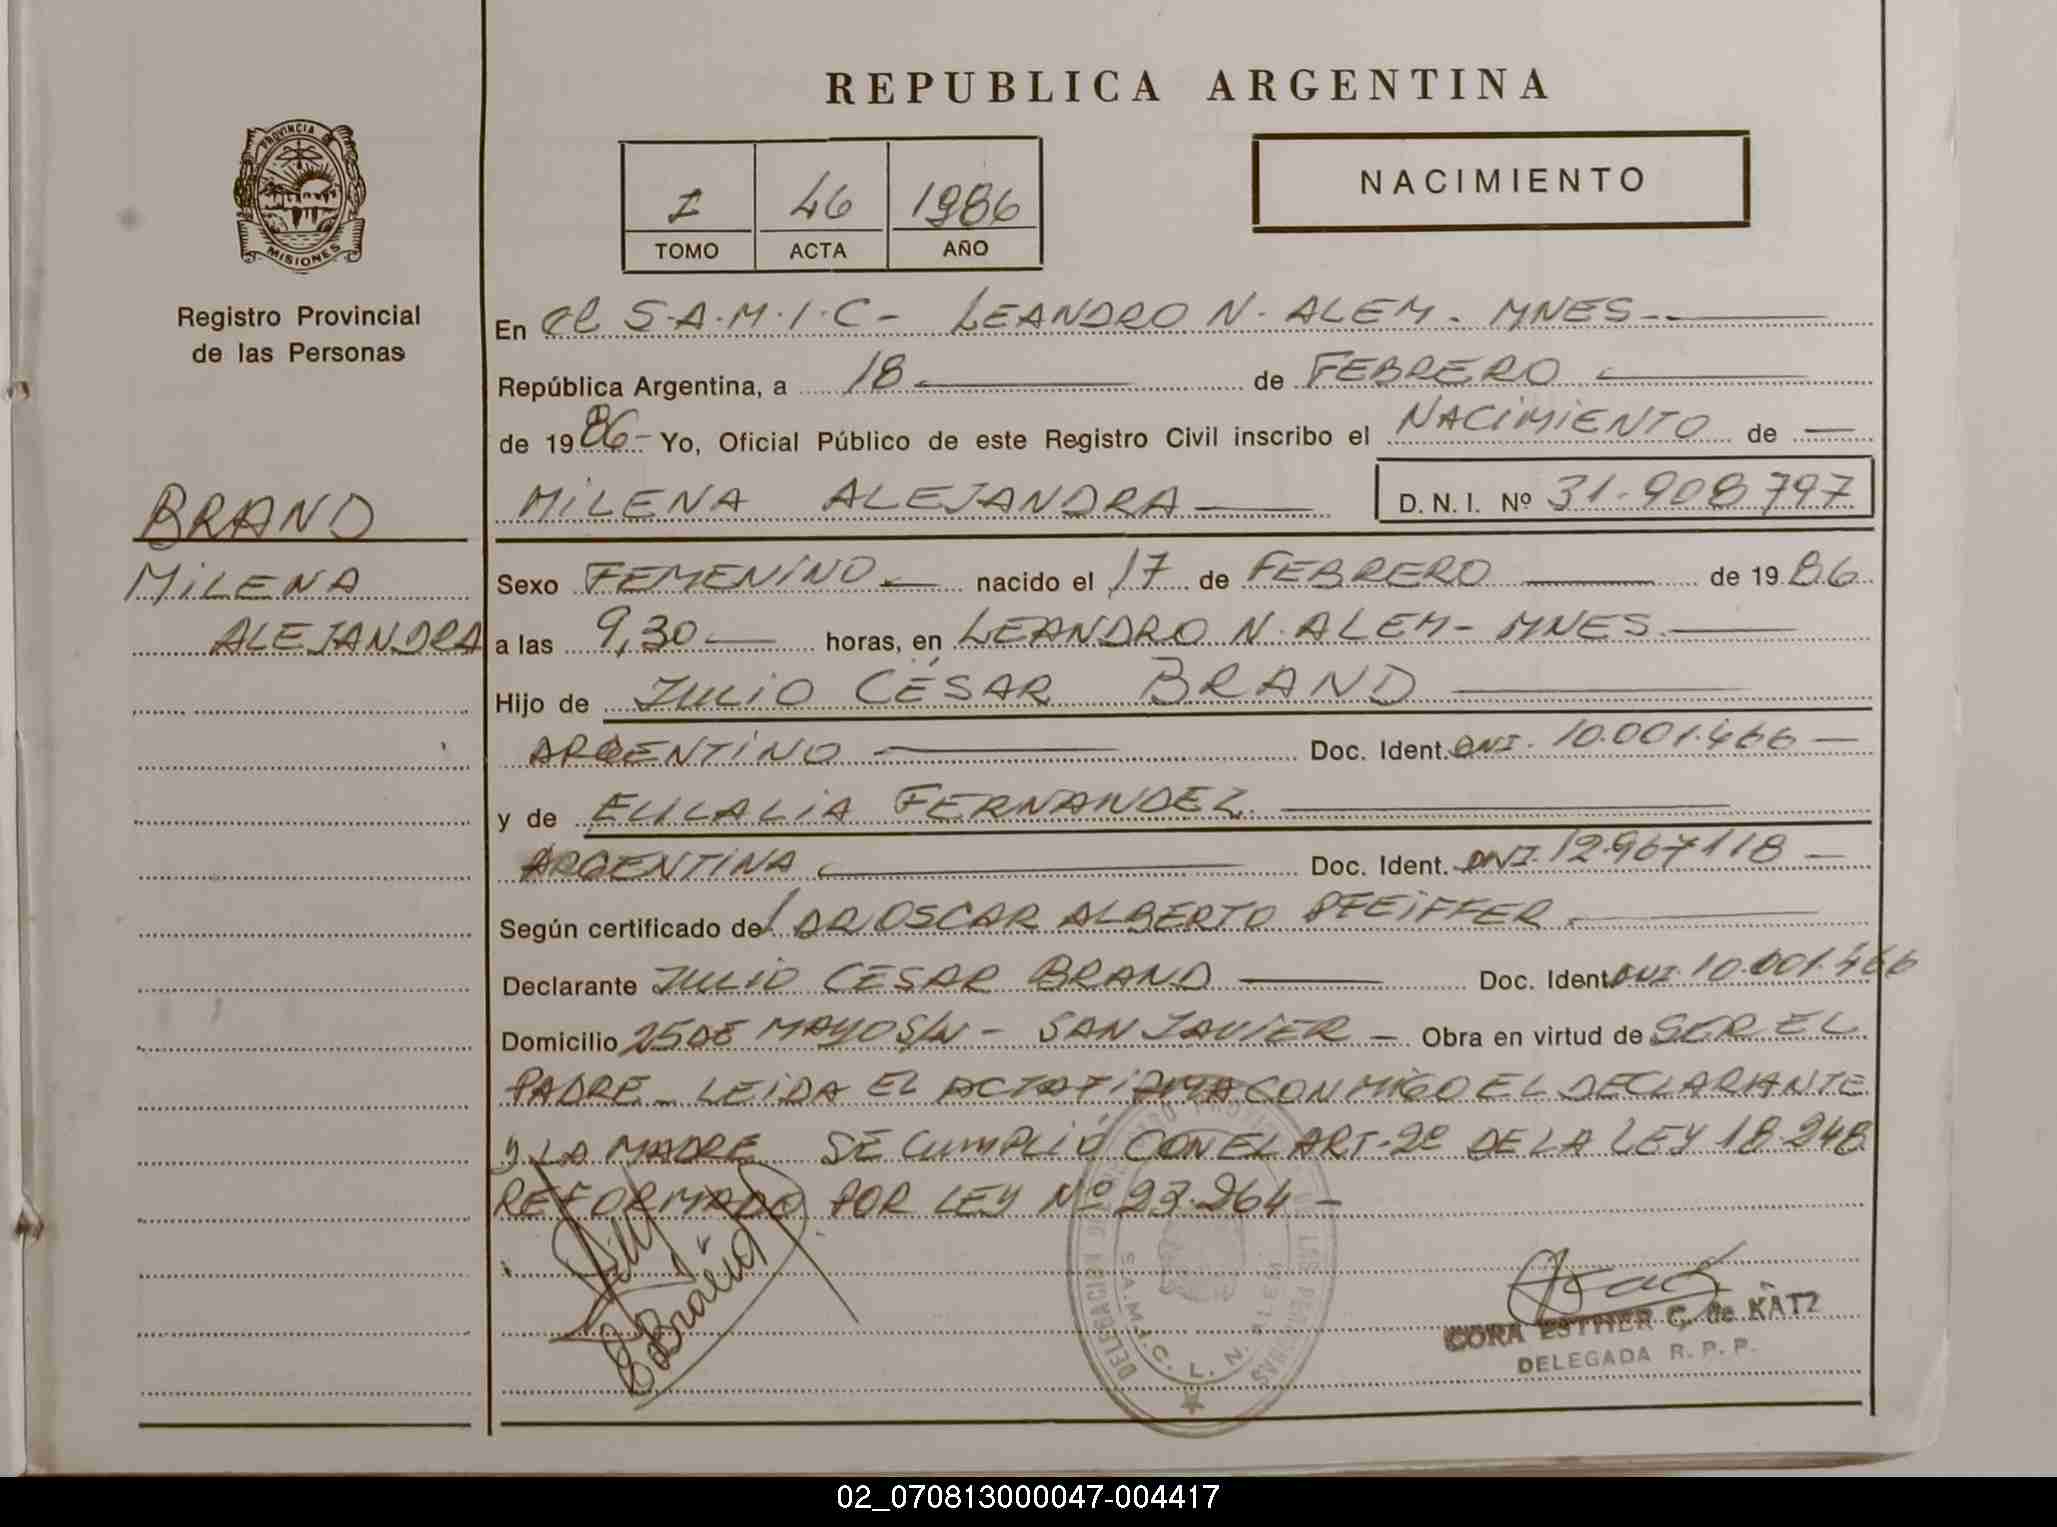 REPUBLICA ARGENTINA
PROVINCIA DE
MISIONES
I 46 1986
TOMO ACTA AÑO
NACIMIENTO
Registro Provincial
de las Personas
BRAND
MILENA
ALEJANDRA
En el S.A.M.I.C- LEANDRO N. ALEM. MNES-
República Argentina, a 18 de FEBRERO
de 1986- Yo, Oficial Público de este Registro Civil inscribo el NACIMIENTO de
MILENA ALEJANDRA D.N.I. Nº 31.908797
Sexo FEMENINO nacido el 17 de FEBRERO de 1986
a las 9,30 horas, en LEANDRO N. ALEM- MNES
Hijo de JULIO CÉSAR BRAND
ARGENTINO Doc. Ident. DNI. 10.001.466
y de EULALIA FERNANDEZ
ARGENTINA Doc. Ident. DNI. 12.967118
Según certificado de/ DR OSCAR ALBERTO PFEIFFER
Declarante JULIO CESAR BRAND Doc. Ident. DNI 10.001.466
Domicilio 25 DE MAYO S/N - SAN JAVIER - Obra en virtud de SER EL
PADRE - LEIDA EL ACTA FIRMA CONMIGO EL DECLARANTE
Y LA MADRE SE CUMPLIO CON EL ART-2º DE LA LEY 18.248
REFORMADO POR LEY Nº 23.264 -
E Brand
S.A.M.I.C. L. N.
CORA ESTHER C. de KATZ
DELEGADA R. P. P.
02_070813000047-004417